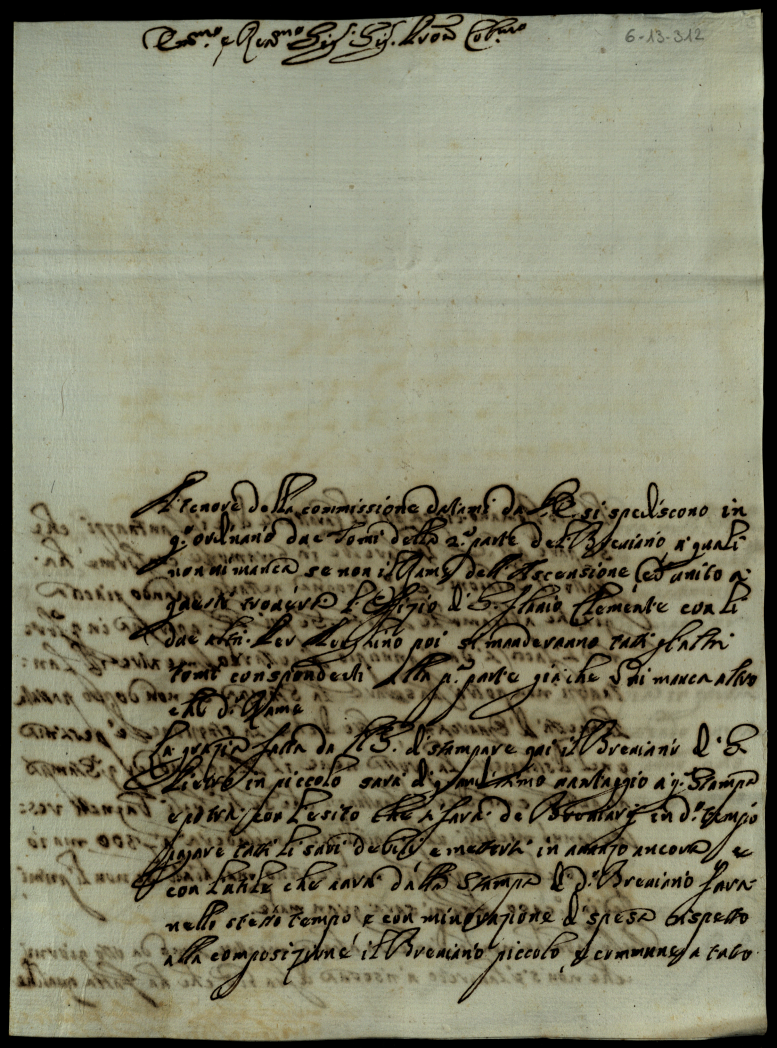 Em.mo e Rev.mo Sig. Sig. Pron Col.mo
6-13-312
A tenore della commissione datami da V.E. si spediscono in
q.o ordinario due Tomi della 2.a parte del Breviario a quali
non vi manca se non il Rame dell'Ascensione
questi l'Offizio di S. Flavio Clemente con li
due altri. Per poi si manderanno tutti gl'altri
tomi corispondenti alla p.a parte già che vi manca altro
che di Rame
La grazia fatta da N.S. di stampare qui il Breviario di S.
Pietro in piccolo sarà di grandissimo vantaggio a q.a Stampa
e potrà con l'esito che si farà de Breviarij in d.o tempo
pagare tutti li suoi debiti e mettersi in avanzo ancora, e
con l'utile che avrà dalla Stampa di d.o Breviario farà
nello stesso tempo e con minorazione di spesa rispetto
alla composizione il Breviario piccolo e commune a tutto